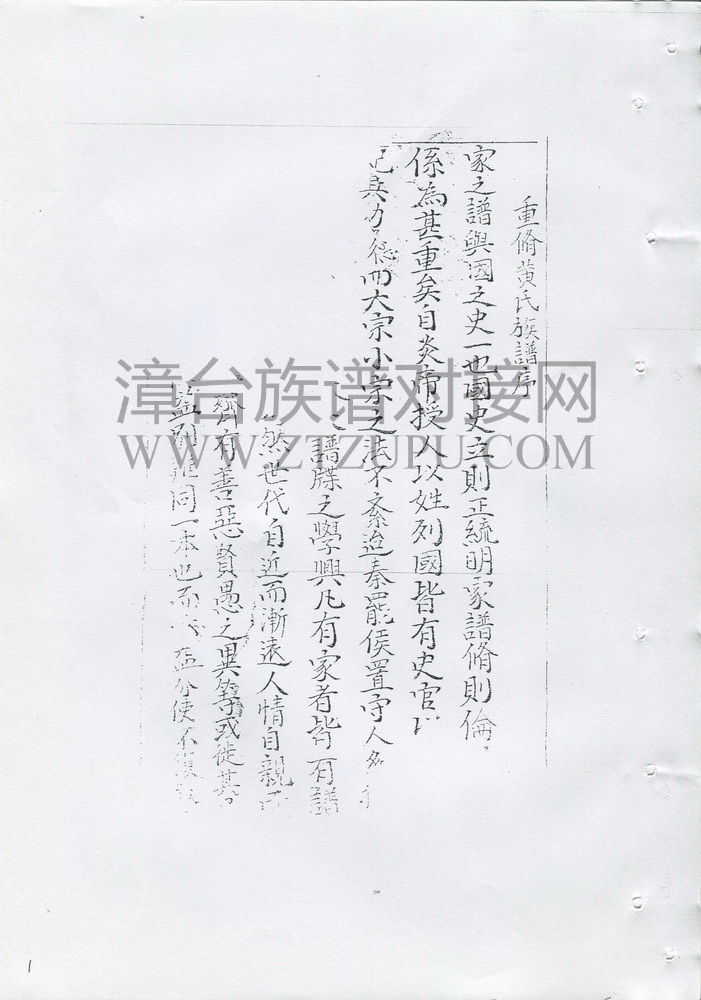 重脩黄氏族譜序
家之譜與國之史一也國史立則正統明家譜脩則倫
係為甚重矣自炎帝授人以姓列國皆有史官以
記其功德而大宗小宗之法不紊迨秦罷侯置守人
譜牒之學興凡有家者皆有譜
然世代自近而漸遠人情自親而
齊有善惡賢愚之異等或徒其
同一本也而 益分使不復
漳台族谱对接网
WWW.ZTZUPU.COM
1